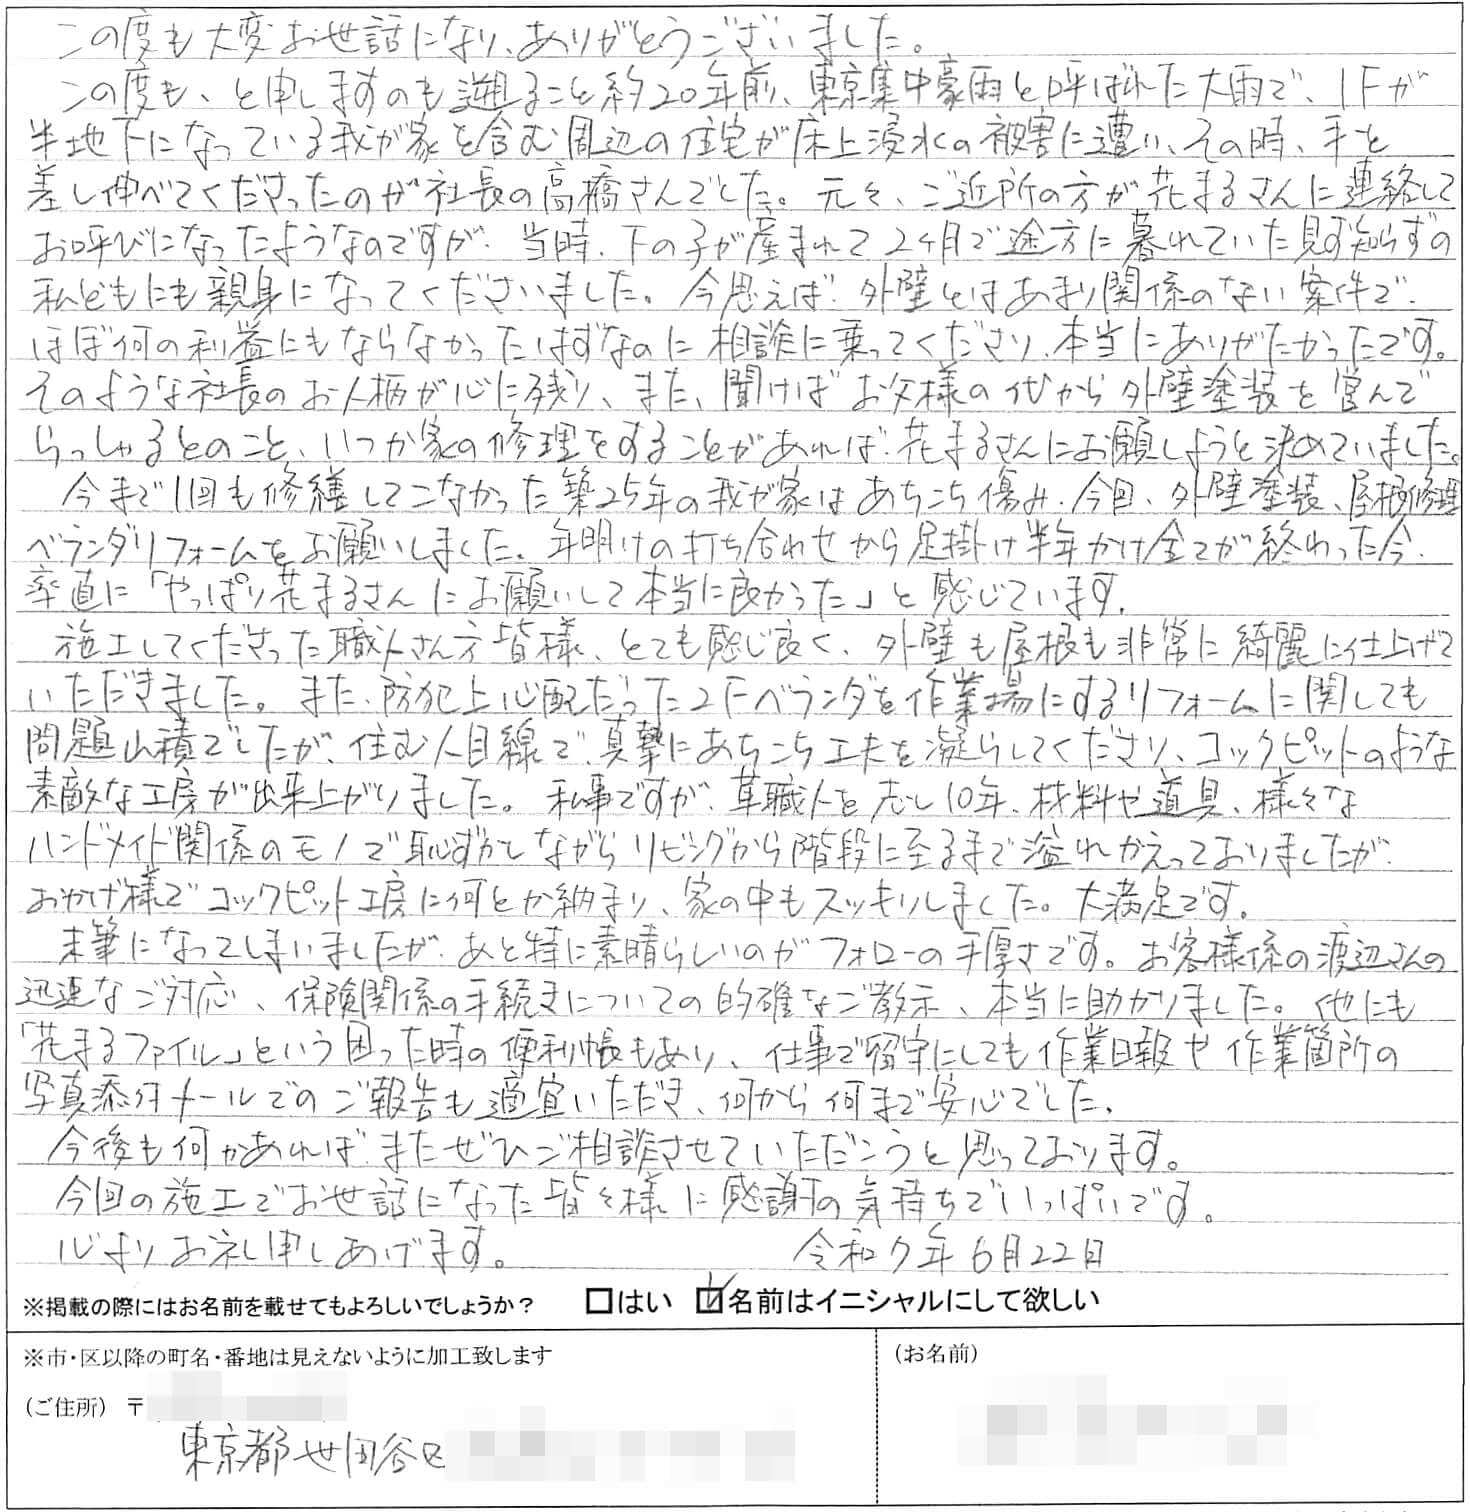 この度も大変お世話になり、ありがとうございました。
この度も、と申しますのも遡ること約20年前、東京集中豪雨と呼ばれた大雨で、1Fが
半地下になっている我が家を含む周辺の住宅が床上浸水の被害に遭い、その時、手を
差し伸べてくださったのが社長の高橋さんでした。元々、ご近所の方が花まるさんに連絡して
お呼びになったようなのですが、当時、下の子が産まれて2ヶ月で途方に暮れていた見ず知らずの
私どもにも親身になってくださいました。今思えば、外壁とはあまり関係のない案件で、
ほぼ何の利益にもならなかったはずなのに相談に乗ってくださり、本当にありがたかったです。
そのような社長のお人柄が心に残り、また、聞けばお父様の代から外壁塗装を営んで
らっしゃるとのこと、いつか家の修理をすることがあれば、花まるさんにお願しようと決めていました。
今まで1回も修繕してこなかった築25年の我が家はあちこち傷み、今回、外壁塗装、屋根修理
ベランダリフォームをお願いしました。年明けの打ち合わせから足掛け半年かけ全てが終わった今、
率直に「やっぱり花まるさんにお願いして本当に良かった」と感じています。
施工してくださった職人さん方皆様、とても感じ良く、外壁も屋根も非常に綺麗に仕上げて
いただきました。また、防犯上心配だった2Fベランダを作業場にするリフォームに関しても
問題山積でしたが、住む人目線で、真摯にあちこち工夫を凝らしてくださり、コックピットのような
素敵な工房が出来上がりました。私事ですが、革職人を志し10年、材料や道具、様々な
ハンドメイド関係のモノで恥ずかしながらリビングから階段に至るまで溢れかえっておりましたが、
おかげ様でコックピット工房に何とか納まり、家の中もスッキリしました。大満足です。
末筆になってしまいましたが、あと特に素晴らしいのがフォローの手厚さです。お客様係の渡辺さんの
迅速なご対応、保険関係の手続きについての的確なご教示、本当に助かりました。他にも
「花まるファイル」という困った時の便利帳もあり、仕事で留守にしても作業日報や作業箇所の
写真添付メールでのご報告も適宜いただき、何から何まで安心でした。
今後も何かあれば、またぜひご相談させていただこうと思っております。
今回の施工でお世話になった皆々様に感謝の気持ちでいっぱいです。
心よりお礼申しあげます。 令和7年6月22日
※掲載の際にはお名前を載せてもよろしいでしょうか？ □はい ☑名前はイニシャルにして欲しい
※市・区以降の町名・番地は見えないように加工致します (お名前)
(ご住所) 〒
東京都世田谷区